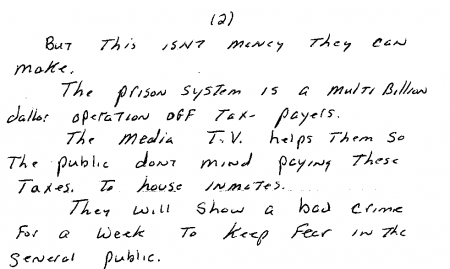 (2)
But This isnt money They can
make.
The prison system is a multi Billion
dallor operation off Tax- payers.
The Media T.V. helps Them so
The public dont mind paying These
Taxes. To house inmates.
They will show a bad crime
for a week To keep fear in the
general public.